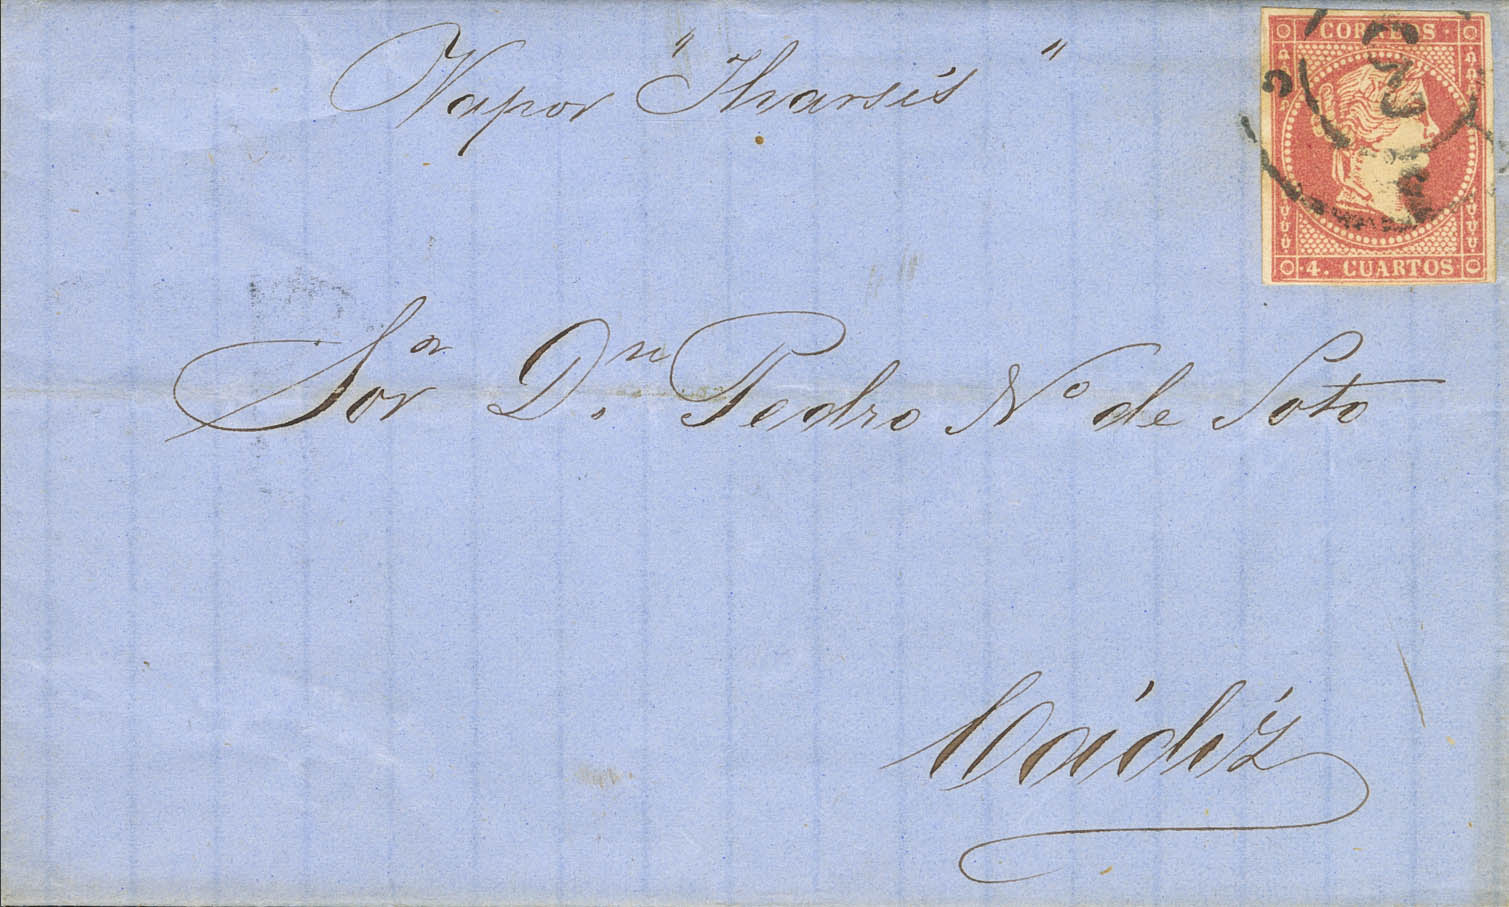 Vapor "Tharsis"
CORREOS
4. CUARTOS
Sor Dn. Pedro No de Soto
Cádiz